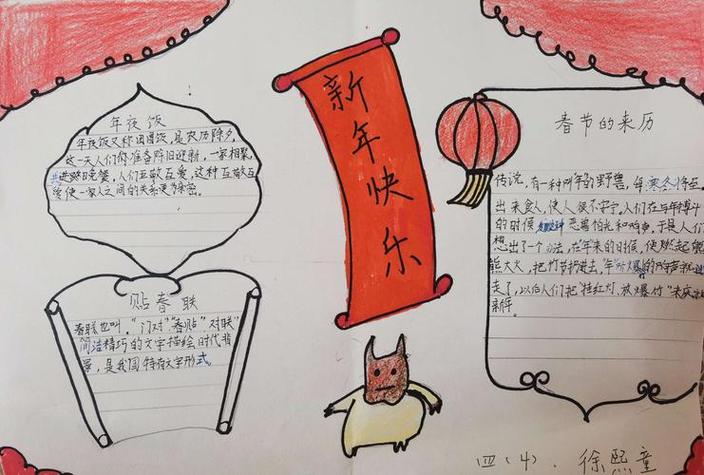 新年快乐
年夜饭
年夜饭又称团圆饭，是农历除夕，
这一天人们都准备除旧迎新，一家相聚，
共进晚餐，人们互敬互爱，这种互敬互
爱使一家人之间的关系更为亲密。
贴春联
春联也叫，“门对”“春贴”对联”
简洁精巧的文字描绘时代背
景，是我国特有文字形式。
春节的来历
传说，有一种叫年的野兽，每 寒冬将至
出来食人，使人很不安宁，人们在与年搏斗
的时候 恶兽怕光和响声，于是人们
想出了一个办法，在年来的时候，使燃起
熊大火，把竹节扔进去，年 的响声
走了，以后人们把 挂红灯，放爆竹
新年。
四(4).徐熙童